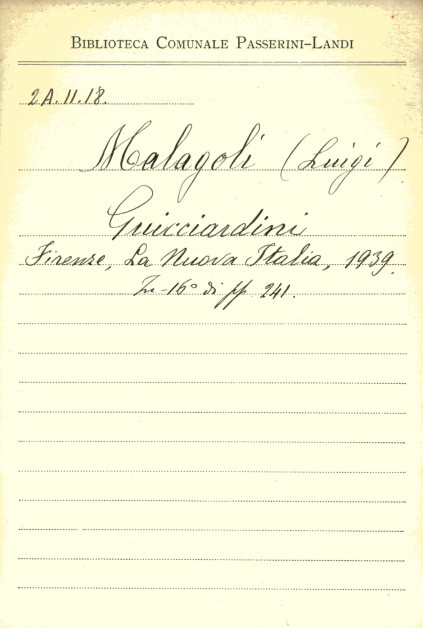 BIBLIOTECA COMUNALE PASSERINI-LANDI
2A.11.18.
Malagoli (Luigi)
Guicciardini
Firenze, La Nuova Italia, 1939.
In-16° di pp 241.